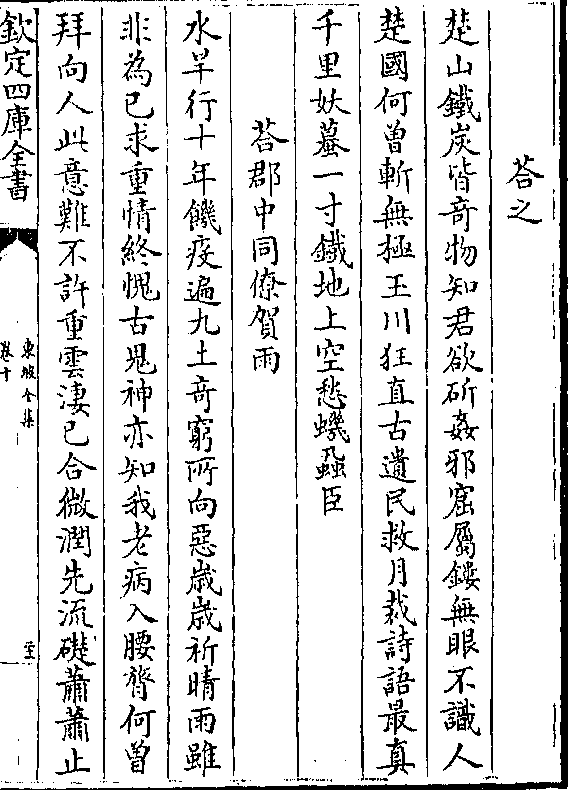 荅之
楚山鐵炭皆竒物知君欲斫姦邪窟屬鏤無眼不識人
楚國何曽斬無極玉川狂直古遺民救月裁詩語最真
千里妖蟇一寸鐵地上空愁蟣蝨臣
荅郡中同僚賀雨
水旱行十年饑疫遍九土竒窮所向惡歳歳祈晴雨雖
非為已求重情終愧古鬼神亦知我老病入腰膂何曽
拜向人此意難不許重雲淒已合微潤先流礎蕭蕭止
欽定四庫全書
東坡全集
卷十